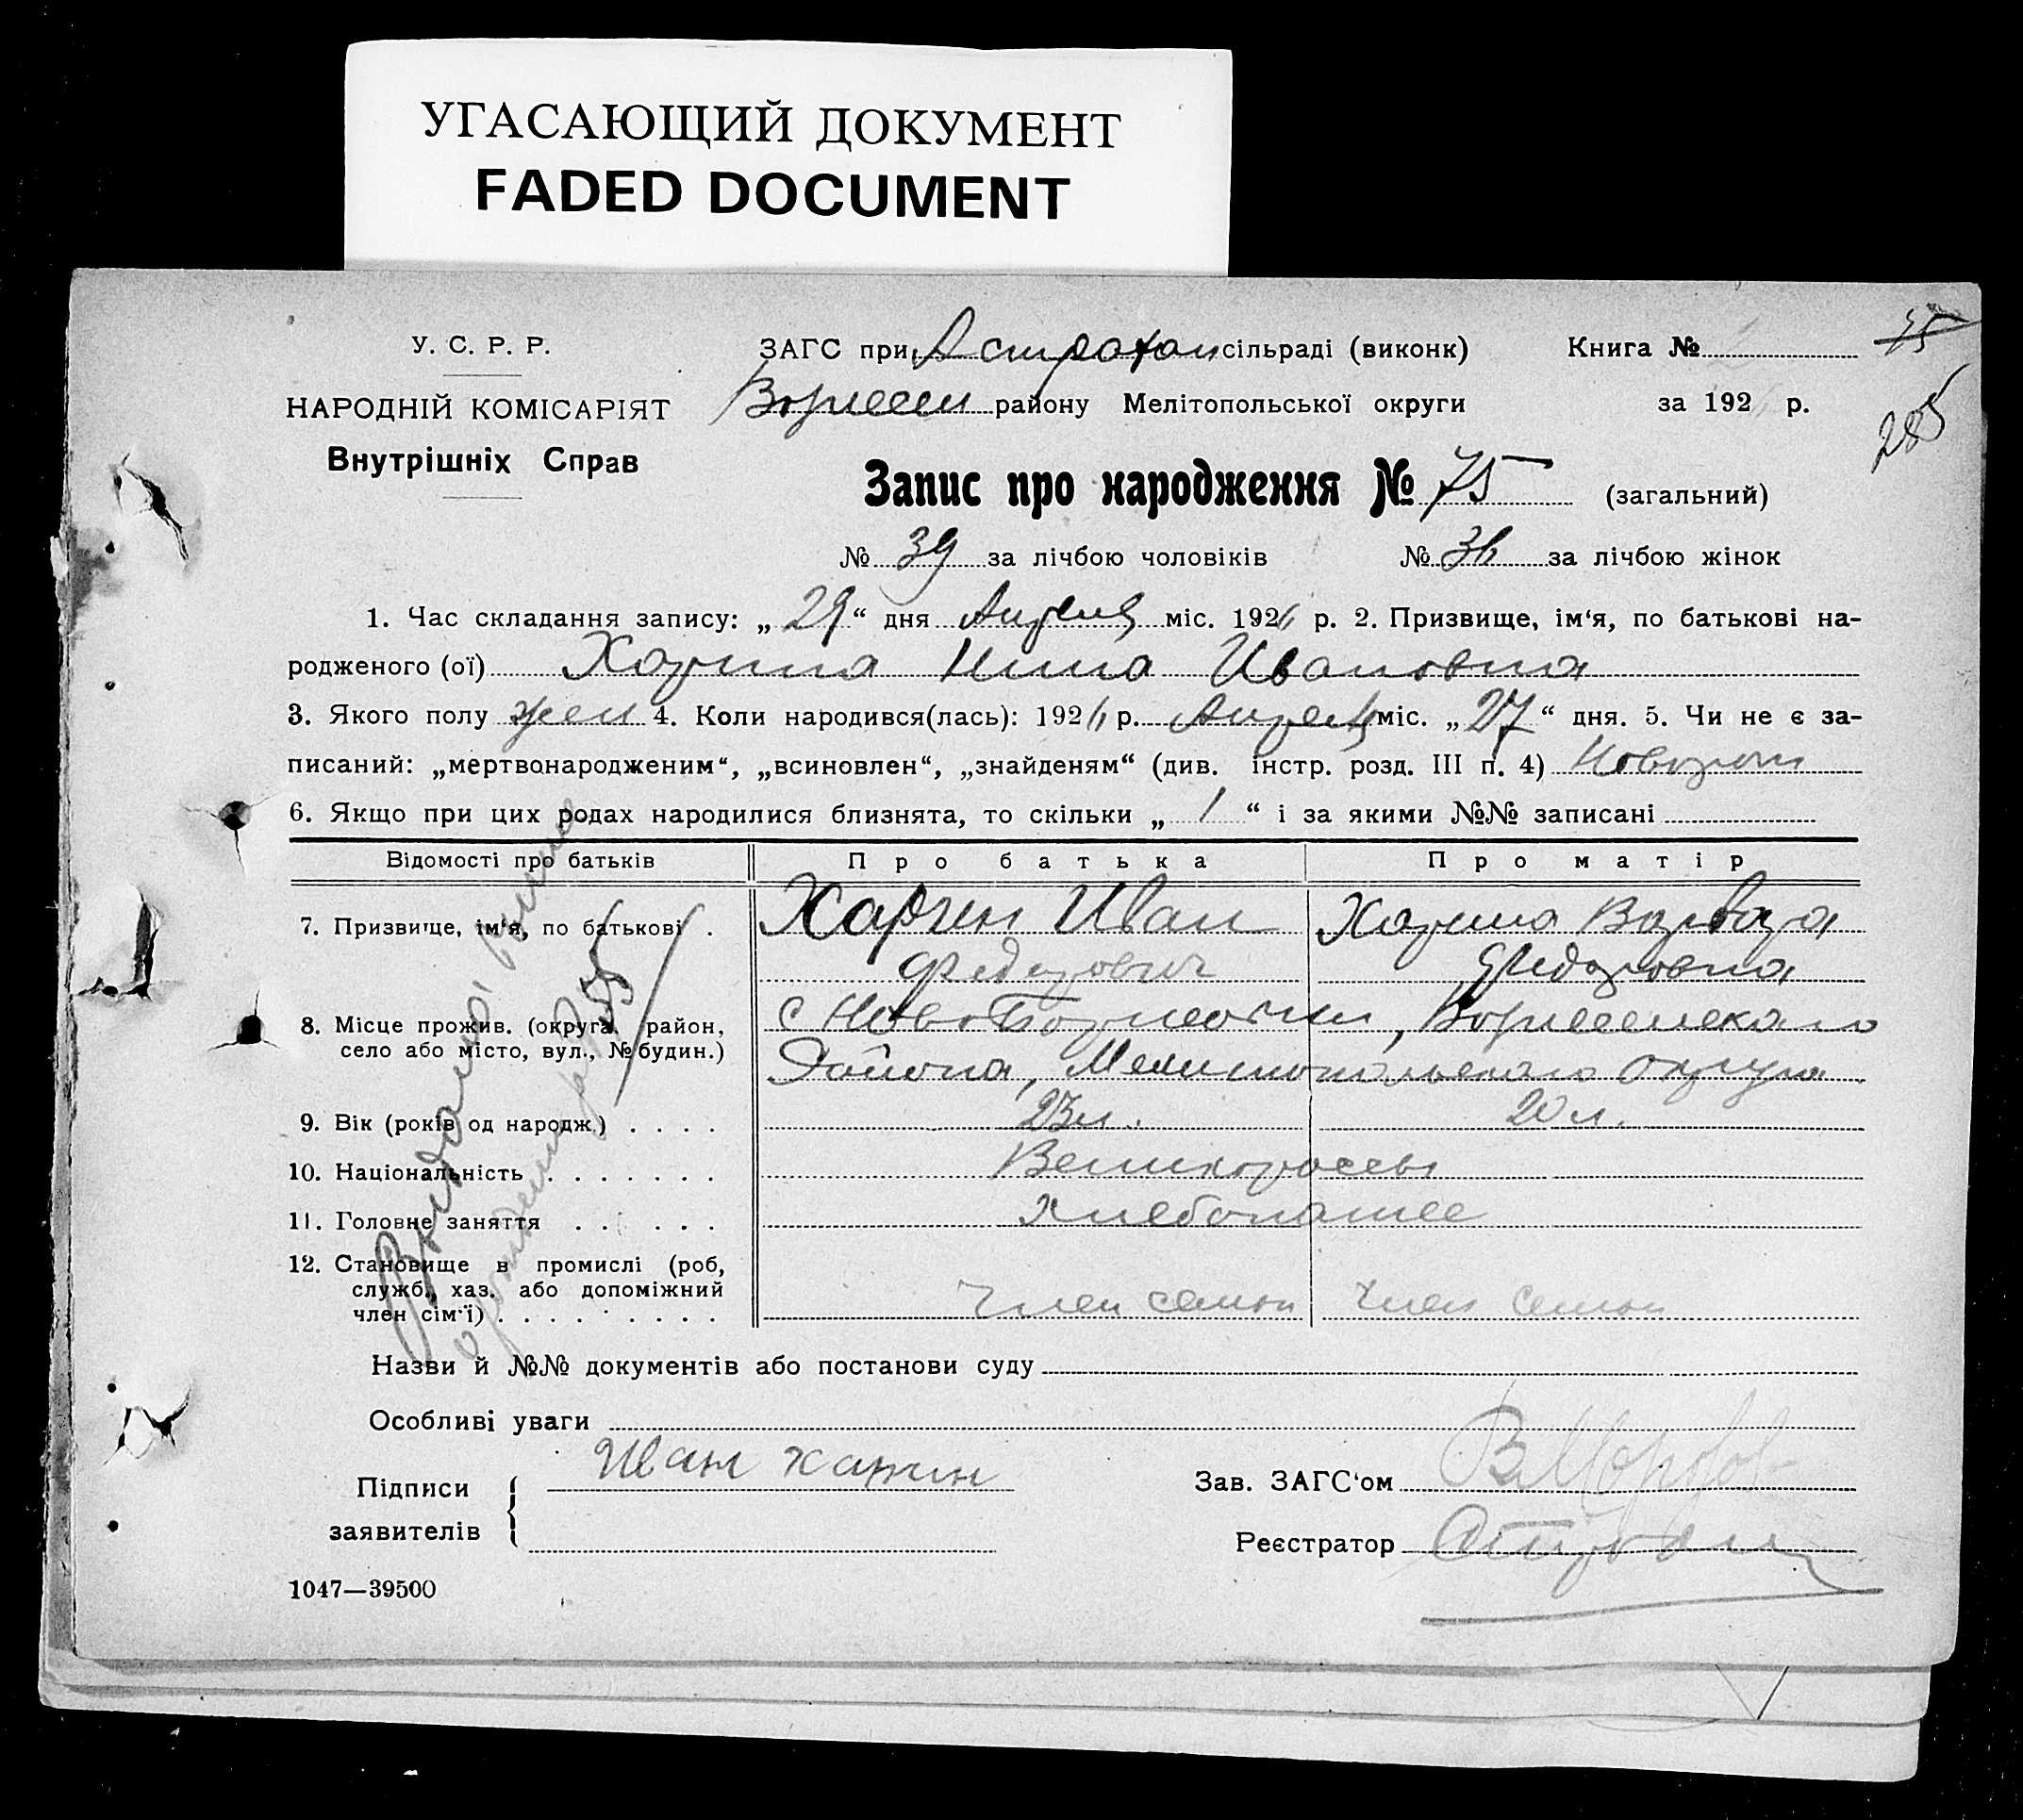 УГАСАЮЩИЙ ДОКУМЕНТ
FADED DOCUMENT
У. С. Р. Р.
НАРОДНІЙ КОМІСАРІЯТ
Внутрішніх Справ
ЗАГС при Астрахан сільраді (виконк)
району Мелітопольської округи
Книга №
75
за 192 р.
285
Запис про народження № 75 (загальний)
№ 39 за лічбою чоловіків № 36 за лічбою жінок
1. Час складання запису: „ 29 “ дня Апреля міс. 1926 р. 2. Призвище, ім‘я, по батькові на-
родженого (ої) Харина Нина Ивановна
3. Якого полу жен 4. Коли народився(лась): 1926 р. Апреля міс. „ 27 “ дня. 5. Чи не є за-
писаний: „мертвонародженим“, „всиновлен“, „знайденям“ (див. інстр. розд. III п. 4)
6. Якщо при цих родах народилися близнята, то скільки „ 1 “ і за якими №№ записані
Відомості про батьків Про батька Про матір
7. Призвище, ім‘я, по батькові . Харин Иван Харина Варвара
Федорович Федоровна
8. Місце прожив. (округа, район,
село або місто, вул., № будин.)
Района, Мелитопольского округа
9. Вік (років од народж.) . . . . 23 л. 20 л.
10. Національність . . . . . . . Великороссы
11. Головне заняття . . . . . . Хлебопашес
12. Становище в промислі (роб,
служб., хаз. або допоміжний
член сім‘ї) . . . . . . . . . Член семьи Член семьи
Назви й №№ документів або постанови суду
Особливі уваги
Підписи
заявителів
Иван Харин
Зав. ЗАГС‘ом
Реєстратор
1047—39500